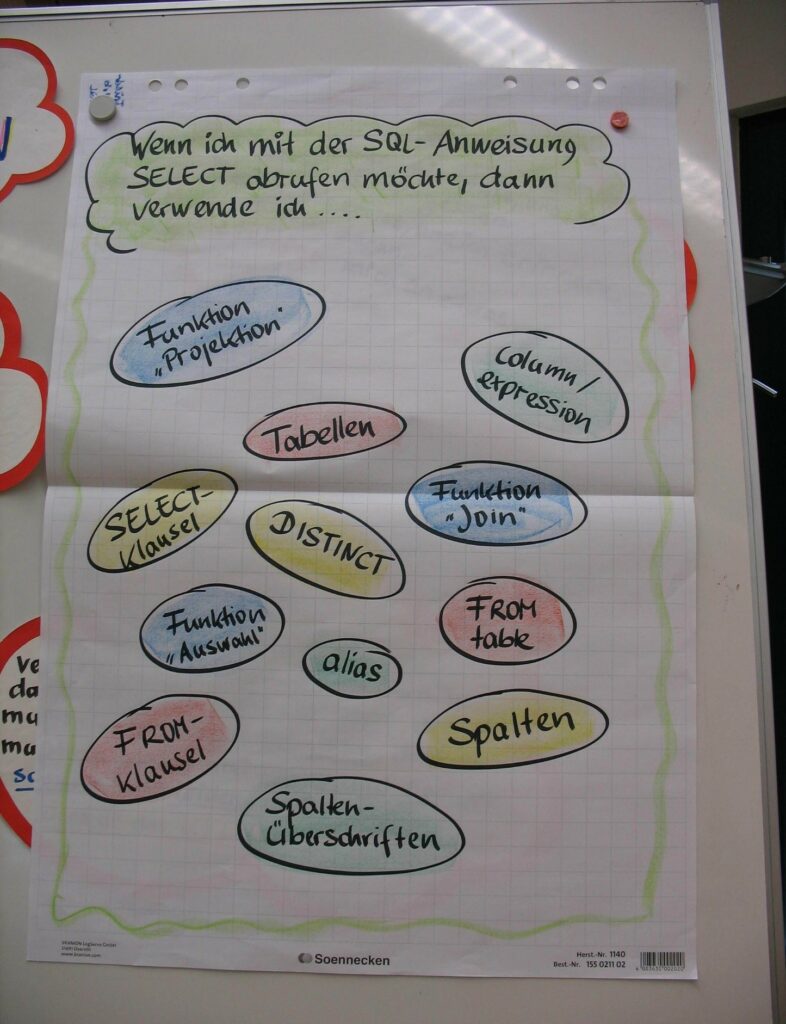 Wenn ich mit der SQL-Anweisung
SELECT abrufen möchte, dann
verwende ich ....
Funktion
„Projektion"
column/
expression
Tabellen
SELECT-
Klausel
DISTINCT
Funktion
„Join"
Funktion
„Auswahl"
FROM
table
alias
FROM-
Klausel
Spalten
Spalten-
Überschriften
Ve
da
mu
mu
Soennecken
Herst.-Nr. 1140
Best.-Nr. 155 0211 02